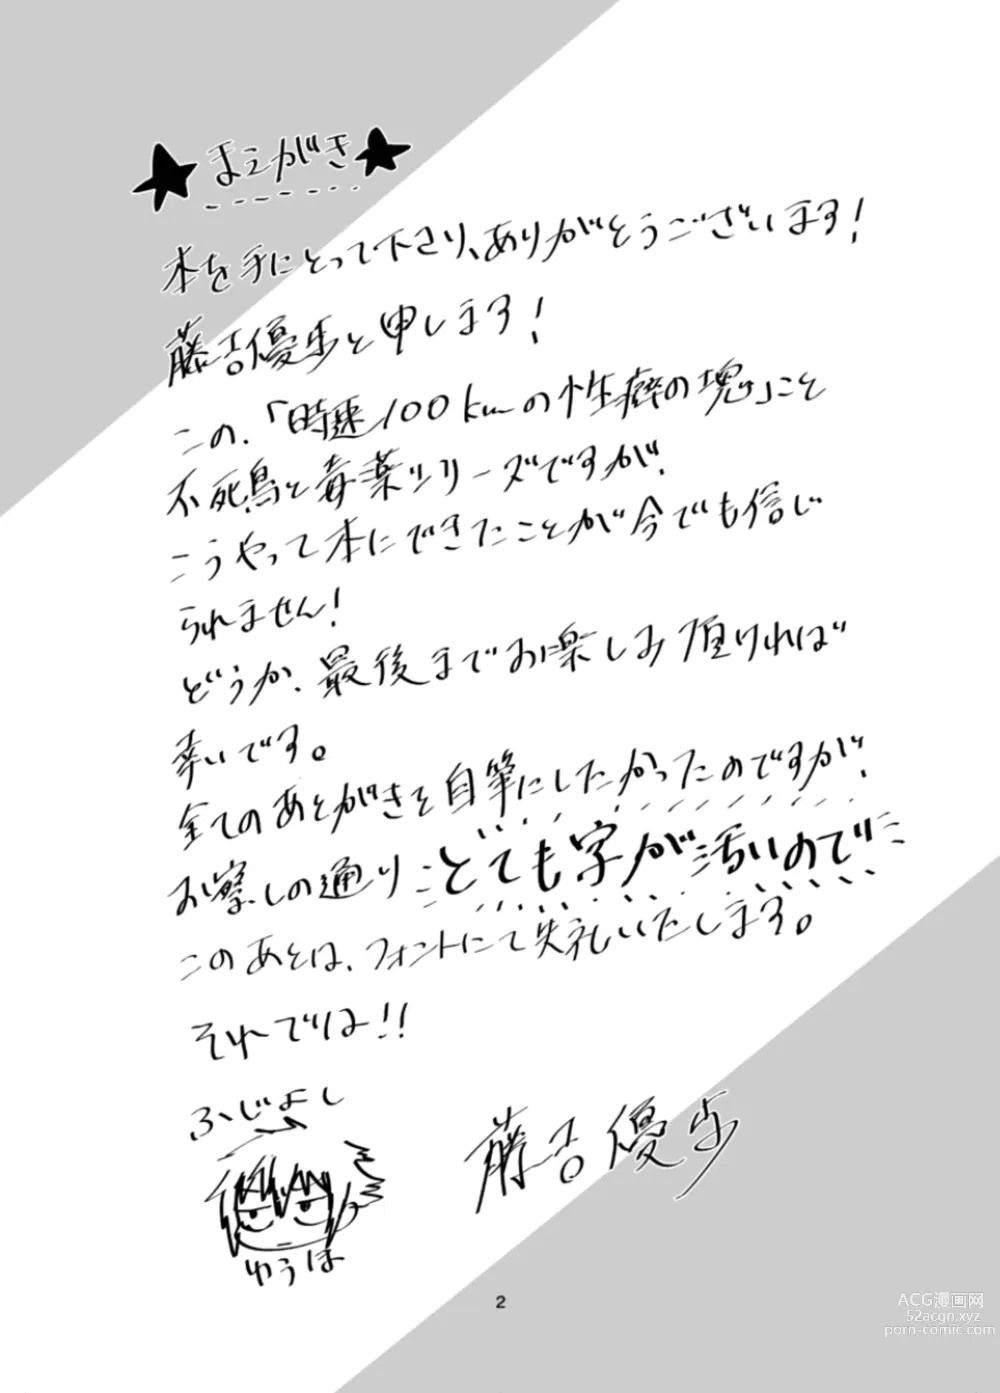 ★まえがき★
本を手にとって下さり、ありがとうございます!
藤吉優歩と申します!
この、「時速100kmの性癖の塊」こと
不死鳥と毒薬シリーズですが、
こうやって本にできたことが今でも信じ
られません!
どうか、最後までお楽しみ頂ければ
幸いです。
全てのあとがきを自筆にしたかったのですが、
お察しの通りとても字が汚いので
このあとは、フォントにて失礼いたします。
それでは!!
ふじよし
ゆうほ
藤吉優歩
2
ACG漫画网
52acgn.xyz
porn-comic.com